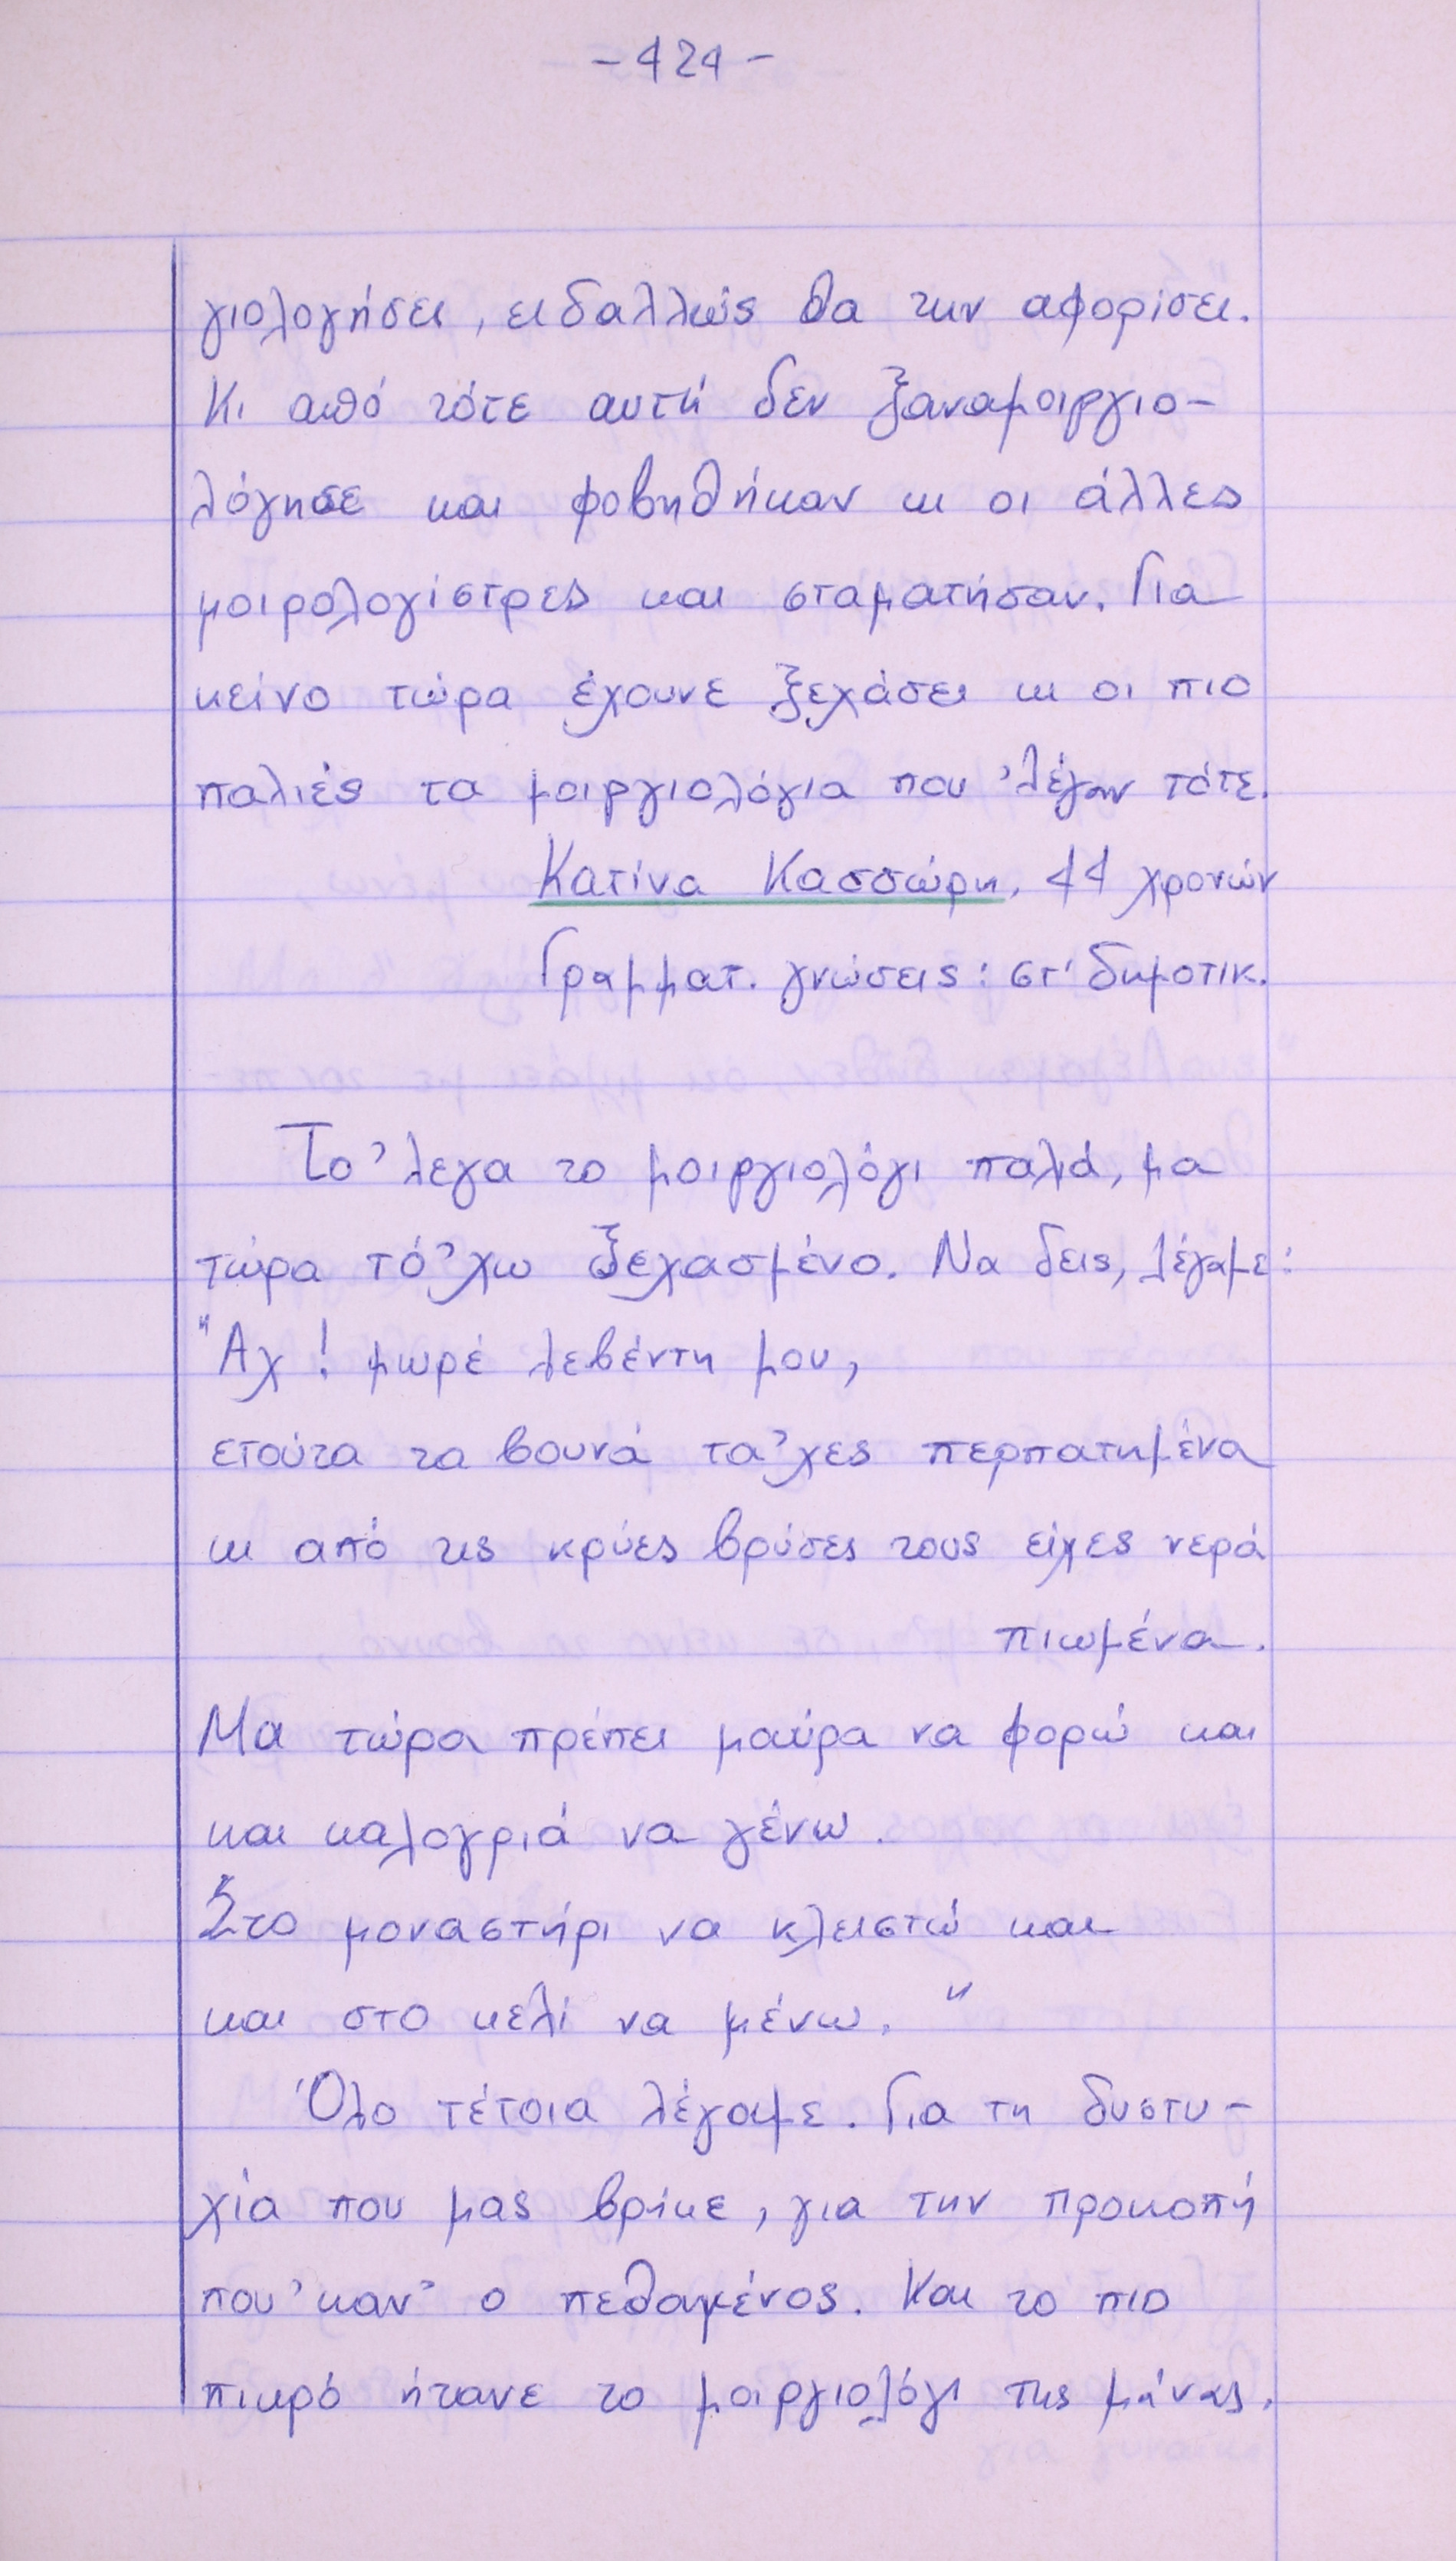 - 424 -
γιολογήσει, ειδαλλιώς θα την αφορίσει.
Κι από τότε αυτή δεν ξαναμοιργιο-
λόγησε και φοβηθήκαν κι οι άλλες
μοιρολογίστρες και σταματήσαν. Για
κείνο τώρα έχουνε ξεχάσει κι οι πιο
παλιές τα μοιργιολόγια που 'λέγαν τότε.
Κατίνα Κασσώρη, 44 χρονών
Γραμματ. γνώσεις: στ' δημοτικ.
Το 'λεγα το μοιργιολόγι παλιά, μα
τώρα τό 'χω ξεχασμένο. Να δεις, λέγαμε:
"Αχ! μωρέ λεβέντη μου,
ετούτα τα βουνά τα 'χες περπατημένα
κι από τις κρύες βρύσες τους είχες νερά
πιωμένα.
Μα τώρα πρέπει μαύρα να φορώ και
και καλογριά να γένω.
Στο μοναστήρι να κλειστώ και
και στο κελί να μένω."
Όλο τέτοια λέγαμε. Για τη δυστυ-
χία που μας βρήκε, για την προκοπή
που 'καν' ο πεθαμένος. Και το πιο
πικρό ήτανε το μοιργιολόγι της μάνας.